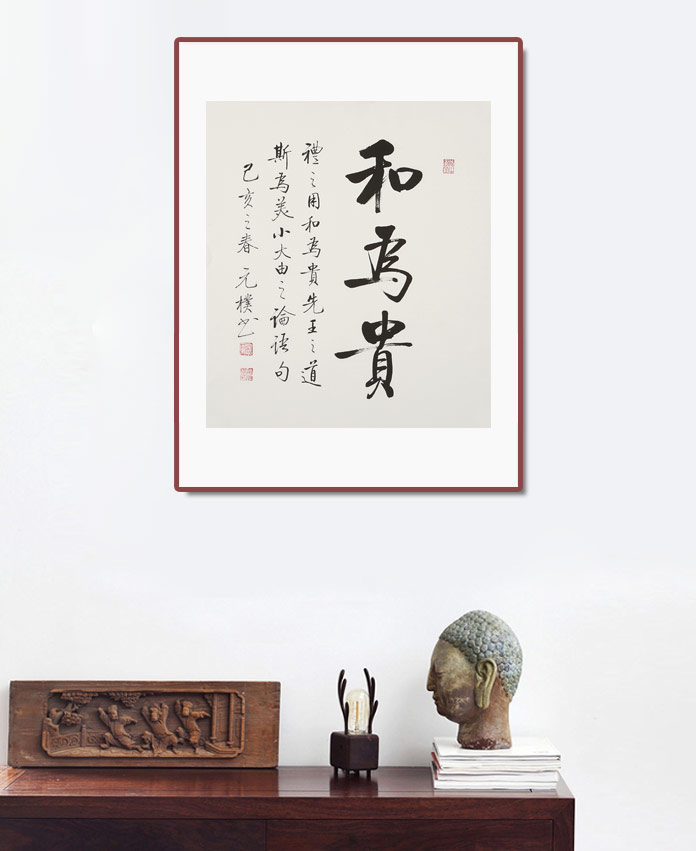 和為貴
禮之用和為貴先王之道
斯為美小大由之論語句
己亥之春 元樸书